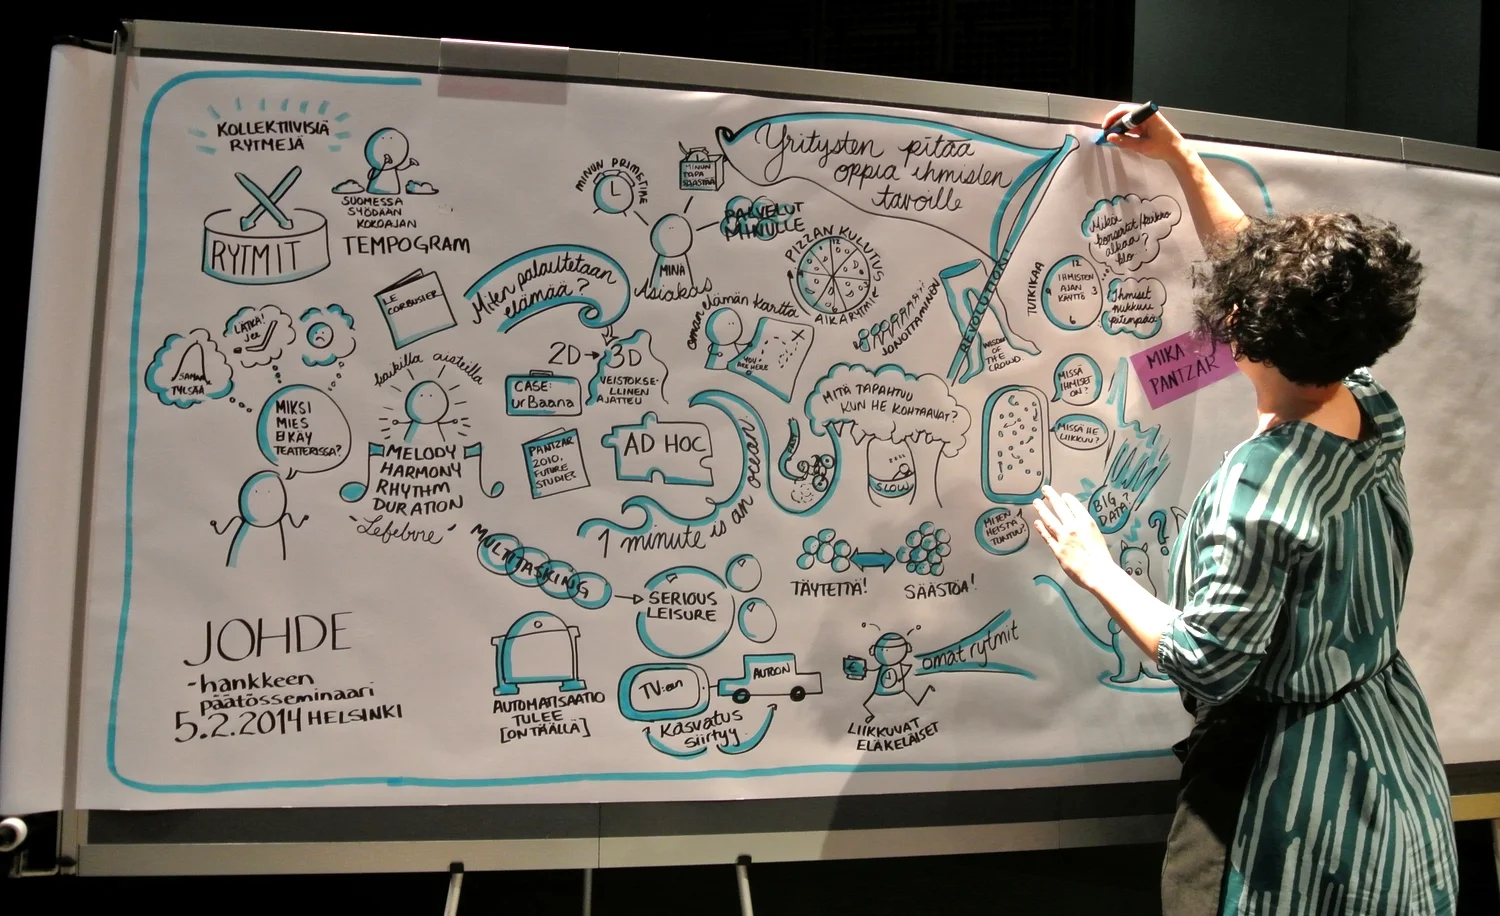 KOLLEKTIIVISIÄ
RYTMEJÄ
RYTMIT
SUOMESSA
SYÖDÄÄN
KOKOAJAN
TEMPOGRAM
LE
CORBUSIER
Miten palautetaan
elämää?
MINUN PRIMETIME
MINUN
TAPA
SÄÄSTÄÄ
PALVELUT
MINULLE
MINÄ
Asiakas
Yritysten pitää
oppia ihmisten
tavoille
PIZZAN KULUTUS
AIKARYTMIE
oman elämän kartta
YOU
ARE HERE
JONOTTAMINEN
REVOLUUTIO!
WISDOM
OF THE
CROWD.
TUTKIKAA
12
IHMISTEN
AJAN
KÄYTTÖ
3
6
Miksi
konsertit
alkaa
klo
Ihmiset
nukkuu
pitempää
MIKA
PANTZAR
SAMAA
TYLSÄÄ
LÄTKÄ!
jee
MIKSI
MIES
EI KÄY
TEATTERISSA?
kaikilla aisteilla
MELODY
HARMONY
RHYTHM
DURATION
-Lefebvre-
2D → 3D
VEISTOKSE-
LLINEN
AJATTELU
CASE:
urBaana
PANTZAR
2010.
FUTURE
STUDIES
AD HOC
1 minute is an ocean
MITÄ TAPAHTUU
KUN HE KOHTAAVAT?
zzzz
SLOW
MISSÄ
IHMISET
ON?
MISSÄ HE
LIIKKUU?
MITEN
HEISTÄ
TUNTUU?
BIG
DATA?
?
MULTITASKING
SERIOUS
LEISURE
TÄYTETTÄ!
SÄÄSTÖÄ!
JOHDE
-hankkeen
päätösseminaari
5.2.2014 HELSINKI
AUTOMATISAATIO
TULEE
[ON TÄÄLLÄ]
TV:en
AUTOON
Kasvatus
siirtyy
omat rytmit
LIIKKUVAT
ELÄKELÄISET